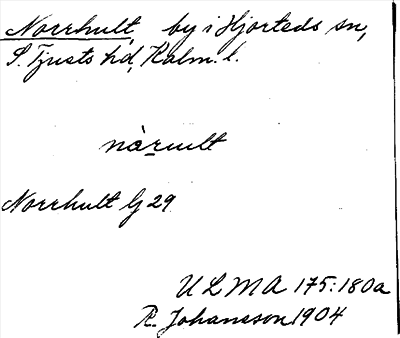 Norrhult, by i Hjorteds sn,
S. Tjusts hd, Kalm. l.
nàrult
Norrhult Gj 29
ULMA 175:180a
R. Johansson 1904